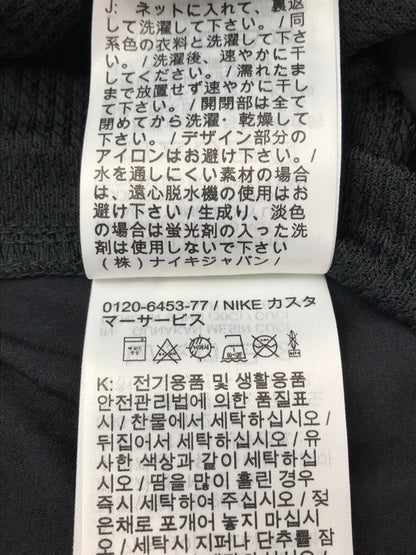 J: ネットに入れて、裏返
して洗濯して下さい。/ 同
系色の衣料と洗濯して下さ
い。/ 洗濯後、速やかに干
してください。/ 濡れたま
まで放置せず速やかに干し
て下さい。/ 開閉部は全て
閉めてから洗濯・乾燥して
下さい。/ デザイン部分の
アイロンはお避け下さい。/
水を通しにくい素材の場合
は、遠心脱水機の使用はお
避け下さい / 生成り、淡色
の場合は蛍光剤の入った洗
剤は使用しないで下さい
(株)ナイキジャパン /
0120-6453-77 / NIKE カスタ
マーサービス
K: 전기용품 및 생활용품
안전관리법에 의한 품질표
시 / 찬물에서 세탁하십시오 /
뒤집어서 세탁하십시오 / 유
사한 색상과 같이 세탁하십
시오 / 땀을 많이 흘린 경우
즉시 세탁하여 주십시오 / 젖
은채로 포개어 놓지 마십시
오 / 세탁시 지퍼나 단추를 잠